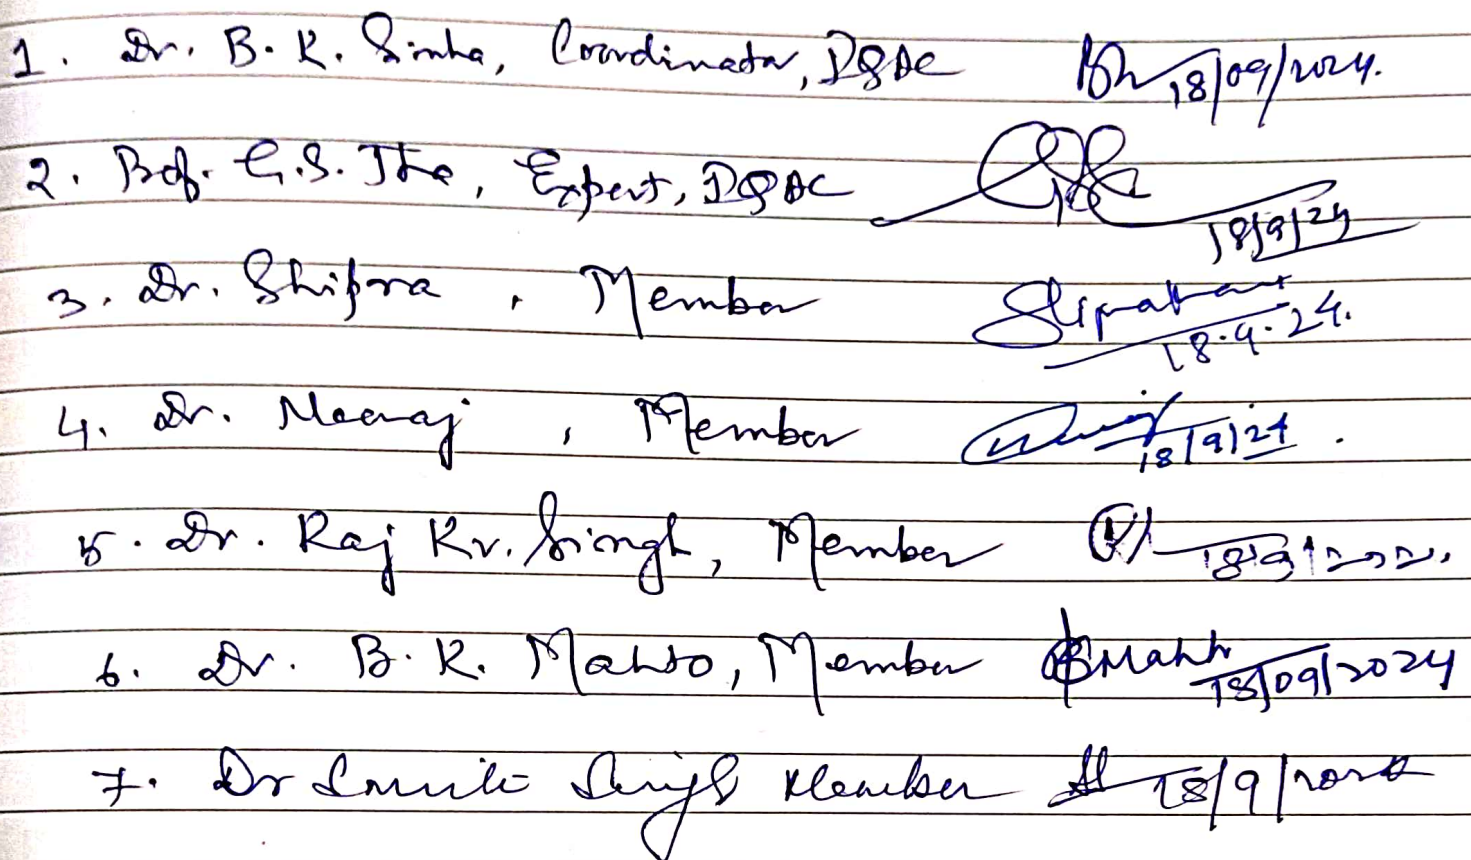 1. Dr. B. K. Sinha, Coordinator, IQAC 18/09/2024.
2. Prof. G.S. Jha, Expert, IQAC 18/9/24
3. Dr. Shipra, Member 18.9.24.
4. Dr. Meeraj, Member 18/9/24.
5. Dr. Raj Kr. Singh, Member
6. Dr. B. K. Mahto, Member BMahto 18/09/2024
7. Dr Smriti Singh Member 18/9/2024